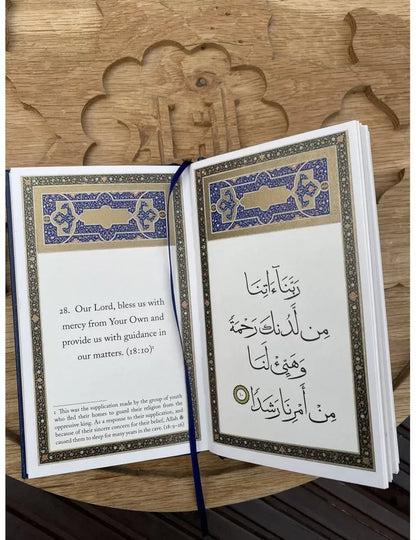 28. Our Lord, bless us with
mercy from Your Own and
provide us with guidance in
our matters. (18:10)¹
1 This was the supplication made by the group of youth
who fled their homes to guard their religion from the
oppressive king. As a response to their supplication, and
because of their sincere concern for their belief, Allah
caused them to sleep for many years in the cave. (18:9-26)
رَبَّنَآ ءَاتِنَا
مِن لَّدُنكَ رَحْمَةً
وَهَيِّئْ لَنَا
مِنْ أَمْرِنَا رَشَدًا